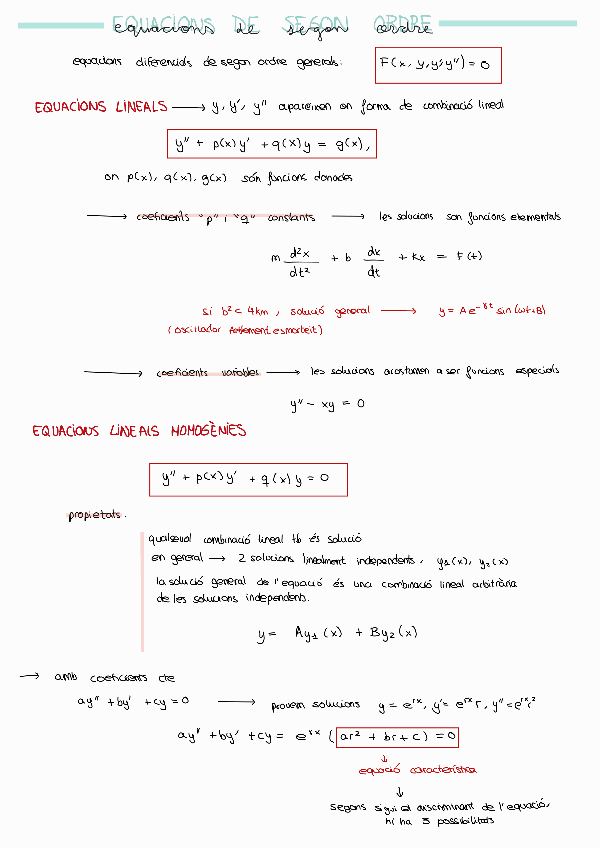 EQUACIONS DE SEGON ORDRE
equacions de segon ordre
equacions diferencials de segon ordre generals: F(x, y, y', y'') = 0
EQUACIONS LINEALS ⟶ y, y', y'' apareixen en forma de combinació lineal
y'' + p(x)y' + q(x)y = g(x),
on p(x), q(x), g(x) són funcions donades
⟶ coeficients "p" i "q" constants ⟶ les solucions son funcions elementals
m d²x/dt² + b dx/dt + kx = F(t)
si b² < 4km, solució general ⟶ y = Ae^-γt sin(ωt+B)
(oscil·lador feblement esmorteït)
⟶ coeficients variables ⟶ les solucions acostumen a ser funcions especials
y'' - xy = 0
EQUACIONS LINEALS HOMOGÈNIES
y'' + p(x)y' + q(x)y = 0
propietats.
qualsevol combinació lineal tb és solució
en general → 2 solucions linealment independents, y₁(x), y₂(x)
la solució general de l'equació és una combinació lineal arbitrària
de les solucions independents.
y = Ay₁(x) + By₂(x)
→ amb coeficients cte
ay'' + by' + cy = 0 ⟶ provem solucions y = e^rx, y' = e^rx r, y'' = e^rx r²
ay'' + by' + cy = e^rx (ar² + br + c) = 0
↓
equació característica
↓
segons sigui el discriminant de l'equació,
hi ha 3 possibilitats